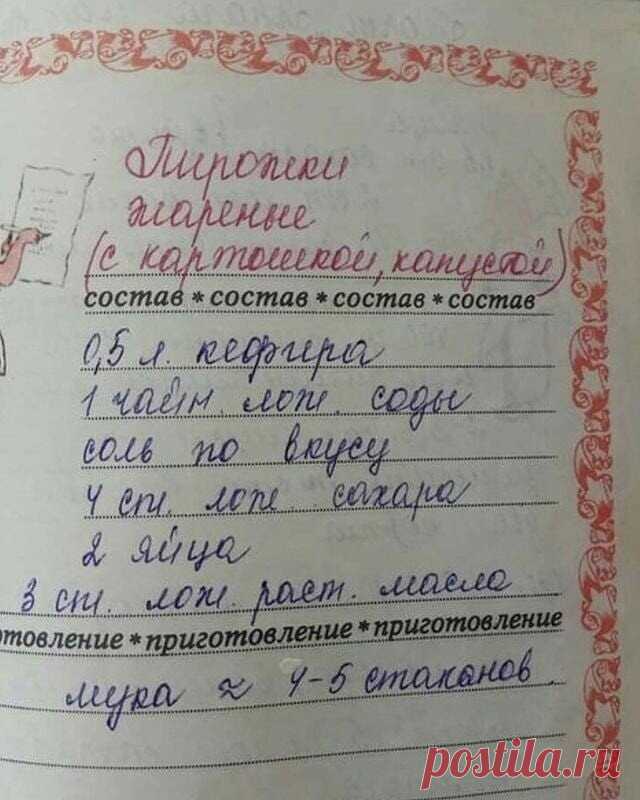 Пирожки
жареные
(с картошкой, капустой)
состав * состав * состав * состав
0,5 л. кефира
1 чайн. лож. соды
соль по вкусу
4 ст. лож. сахара
2 яйца
3 ст. лож. раст. масла
отовление * приготовление * приготовление
мука ≈ 4-5 стаканов
postila.ru